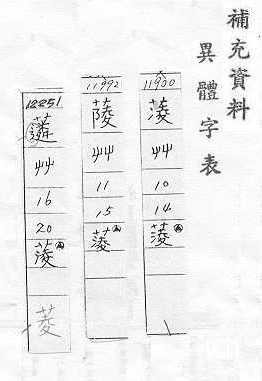 補充資料
異體字表
11900
淩
艸
10
14
蔆
11992
蔆
艸
11
15
蔆
12251
艸
16
20
蔆
菱